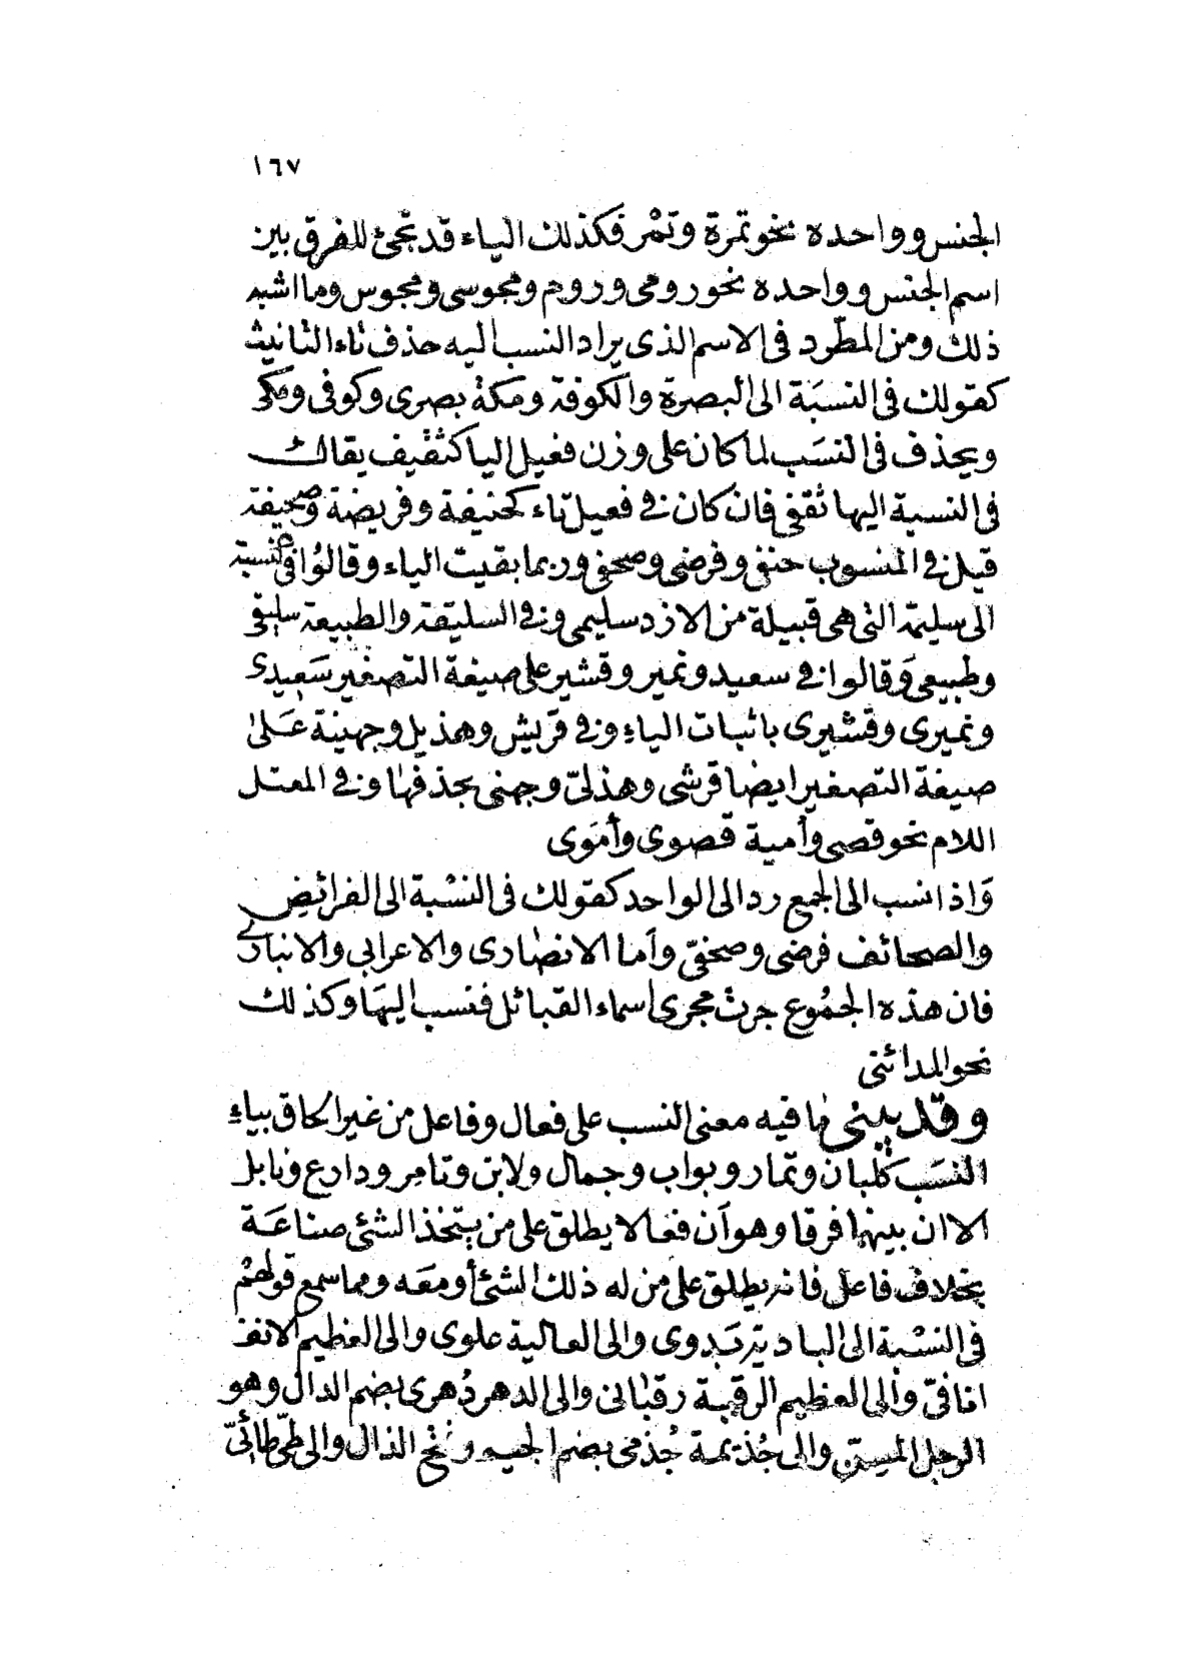 ١٦٧
الجنس وواحده نحو تمرة وتمْر فكذلك الياء قد تجئ للفرق بين
اسم الجنس وواحده نحو رومى وروم ومجوسى ومجوس وما اشبه
ذلك ومن المطّرد فى الاسم الذى يراد النسب اليه حذف تاء التانيث
كقولك فى النسبَة الى البصرة والكوفة ومكة بصرى وكوفى ومكى
ويحذف فى النسَب لما كان على وزن فعيل اليا كثقيف يقال
فى النسبة اليها ثقفى فان كان فى فعيل تاء كحنيفة وفريضة وصحيفة
قيل فى المنسوب حنفى وفرضى وصحفى وربما بقيت الياء وقالوُا فى النسبة
الى سليمة التى هى قبيلة من الازد سليمى وفى السليقة والطبيعة سليقى
وطبيعى وَقالوا فى سعيد ونمير وقشير على صيغة التصغير سَعِيدى
ونميرى وقشيرى باثبات الياءِ وفى قريش وهذيل وجهينة عَلىٰ
صيغة التصغير ايضا قرشى وهذلىّ وجهنى بحذفها وفى المعتل
اللام نحو قصى وأمية قصوى وأمَوى
وَاذا نسب الى الجمع رد الى الواحد كقولك فى النسْبة الى الفرائضِ
والصحائف فرضى وصحفىّ وأما الانصارى والاعرابى والانبارى
فان هذه الجمُوع جرت مجرى اسماء القبائل فنسب اليهَا وكذلك
نحو المدائنى
وقد يبنى ما فيه معنى النسب على فعال وفاعل من غير الحاق بياءِ
النسَب كلبان وتمار وبواب وجمال ولابن وتامر ودارع ونابل
الا ان بينهما فرقا وهو أن فعالا يطلق على من يتخذ الشئ صناعَة
بخلاف فاعل فانه يطلق على من له ذلك الشئ أو معَه ومما سمع قولهُم
فى النسْبة الى البادية بَدوى والى العالية علوى والى العظيم الانف
انافىّ والى العظيم الرقبة رقبانى والى الدهر دُهرى بضم الدال وهو
الرجل المسنّ والى جُذيمة جُذمى بضم الجيم وفتح الذال والى طىّ طائىّ